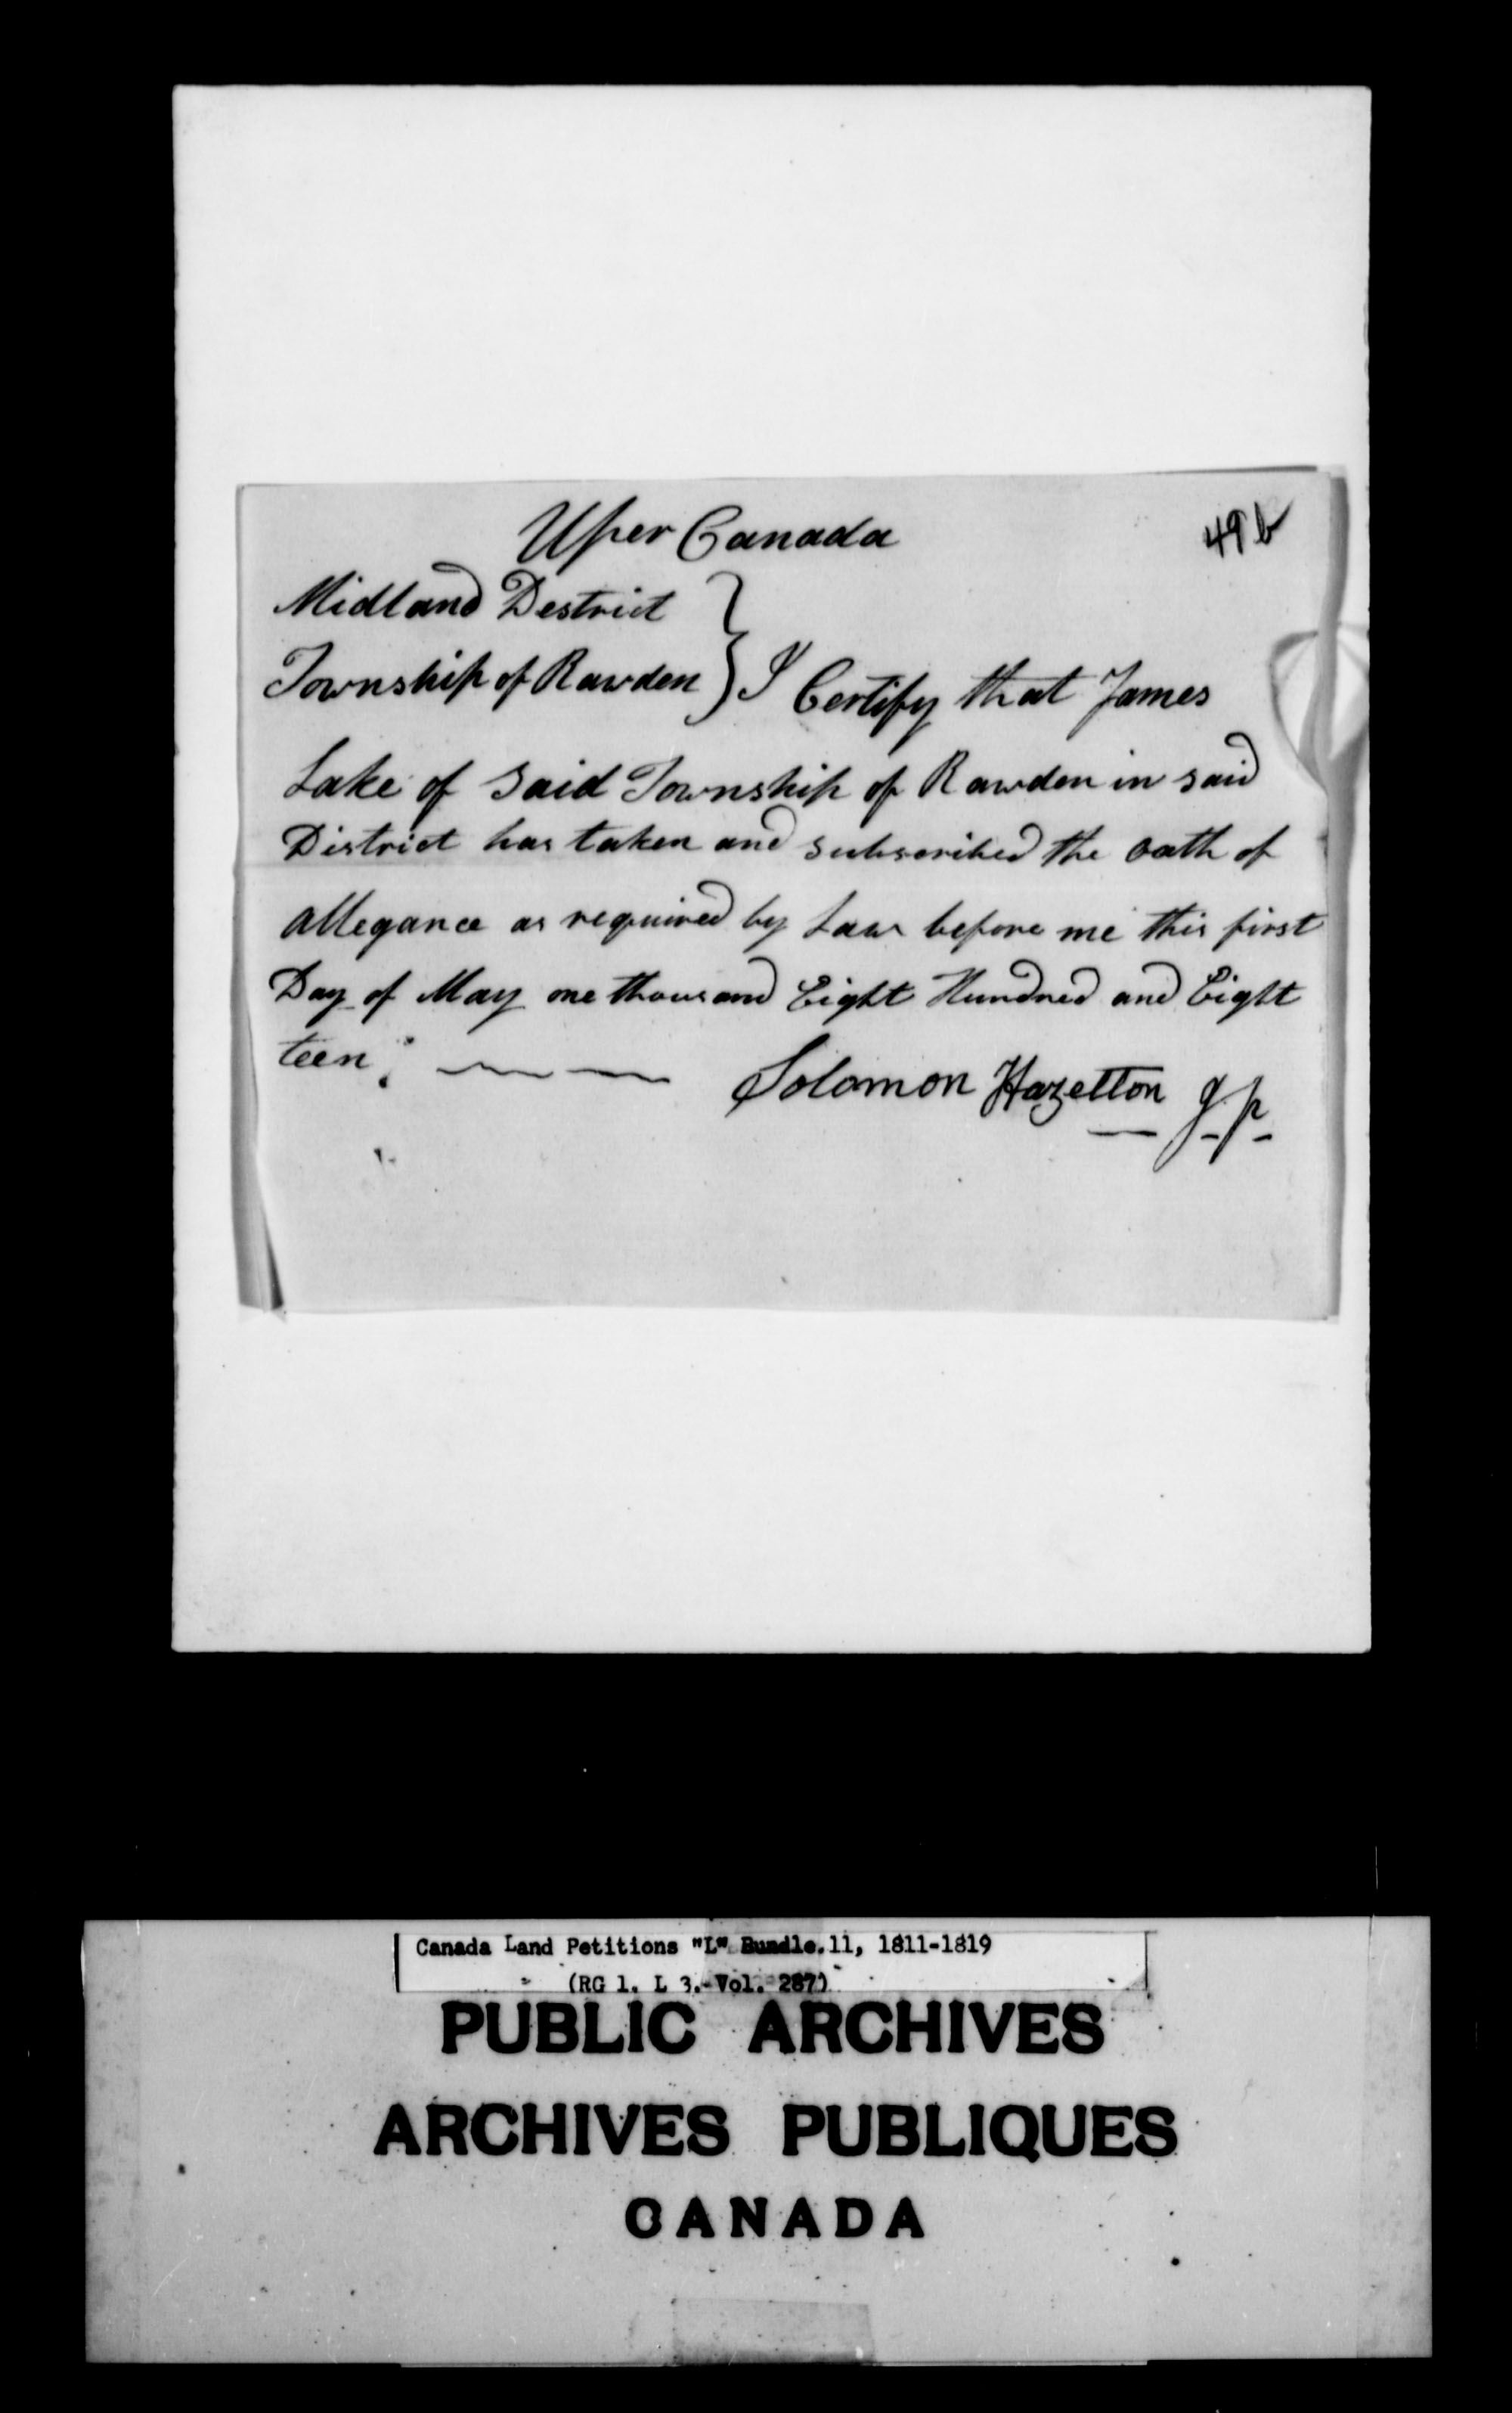 Uper Canada
49b
Midland Destrict
Township of Rawden } I Certify that James
Lake of Said Township of Rawden in said
District has taken and subscribed the oath of
allegance as required by Law before me this first
Day of May one thousand Eight Hundred and Eight
teen;
Solomon Hazelton J.P.
Canada Land Petitions "L" Bundle.11, 1811-1819
(RG 1, L 3, Vol. 287)
PUBLIC ARCHIVES
ARCHIVES PUBLIQUES
CANADA